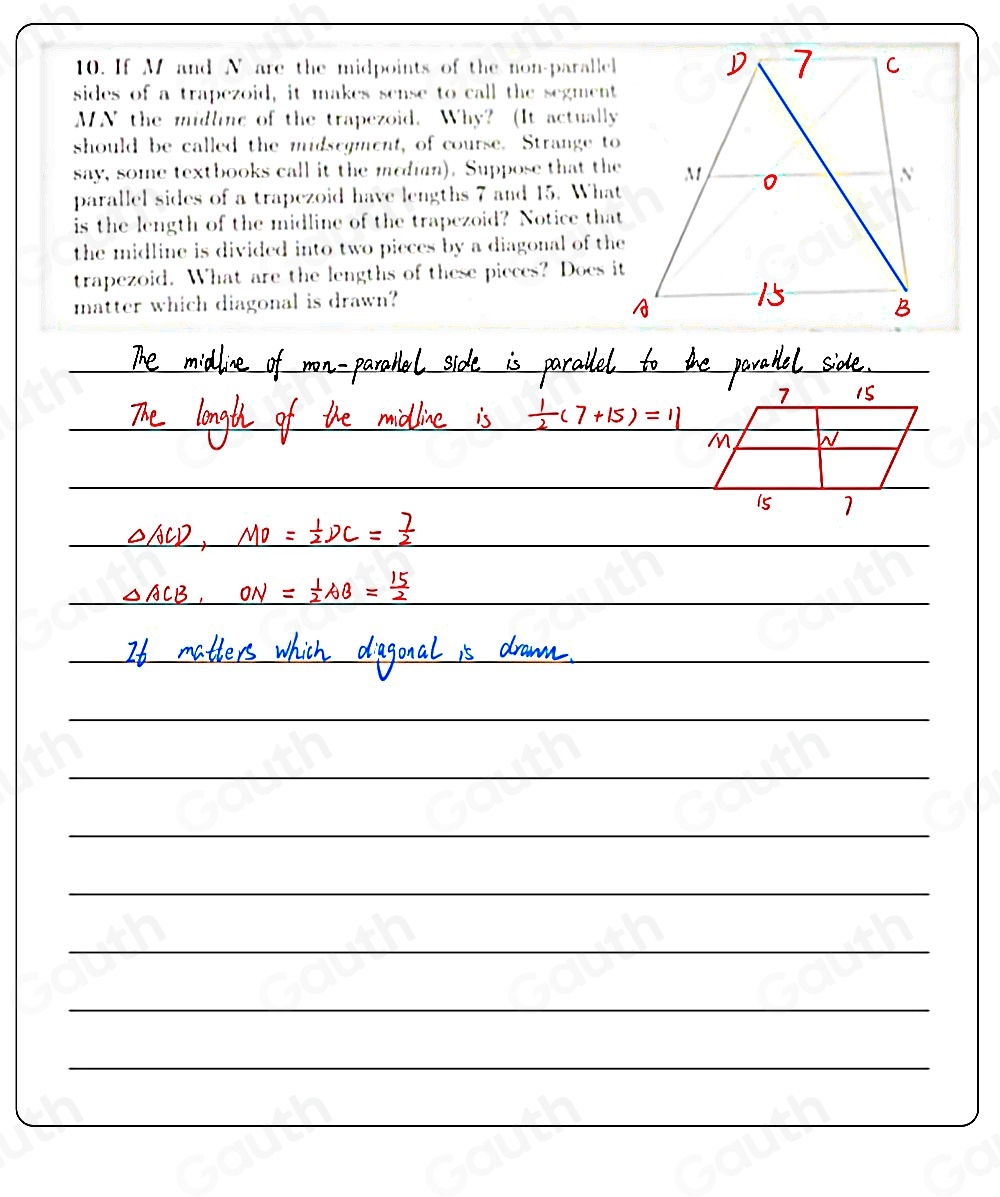 10. If M and N are the midpoints of the non-parallel
sides of a trapezoid, it makes sense to call the segment
MN the midline of the trapezoid. Why? (It actually
should be called the midsegment, of course. Strange to
say, some textbooks call it the median). Suppose that the
parallel sides of a trapezoid have lengths 7 and 15. What
is the length of the midline of the trapezoid? Notice that
the midline is divided into two pieces by a diagonal of the
trapezoid. What are the lengths of these pieces? Does it
matter which diagonal is drawn?
D 7 C
M O N
A 15 B
The midline of non-parallel side is parallel to the parallel side.
The length of the midline is 1/2 (7+15) = 11
7 15
M N
15 7
△ACD, MO = 1/2 DC = 7/2
△ACB, ON = 1/2 AB = 15/2
It matters which diagonal is drawn.
Gauth